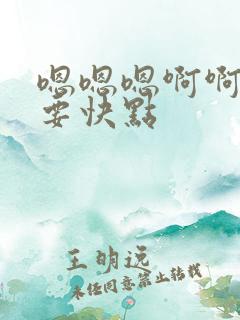 嗯嗯嗯啊啊
要快點
王明远
未经同意禁止转载